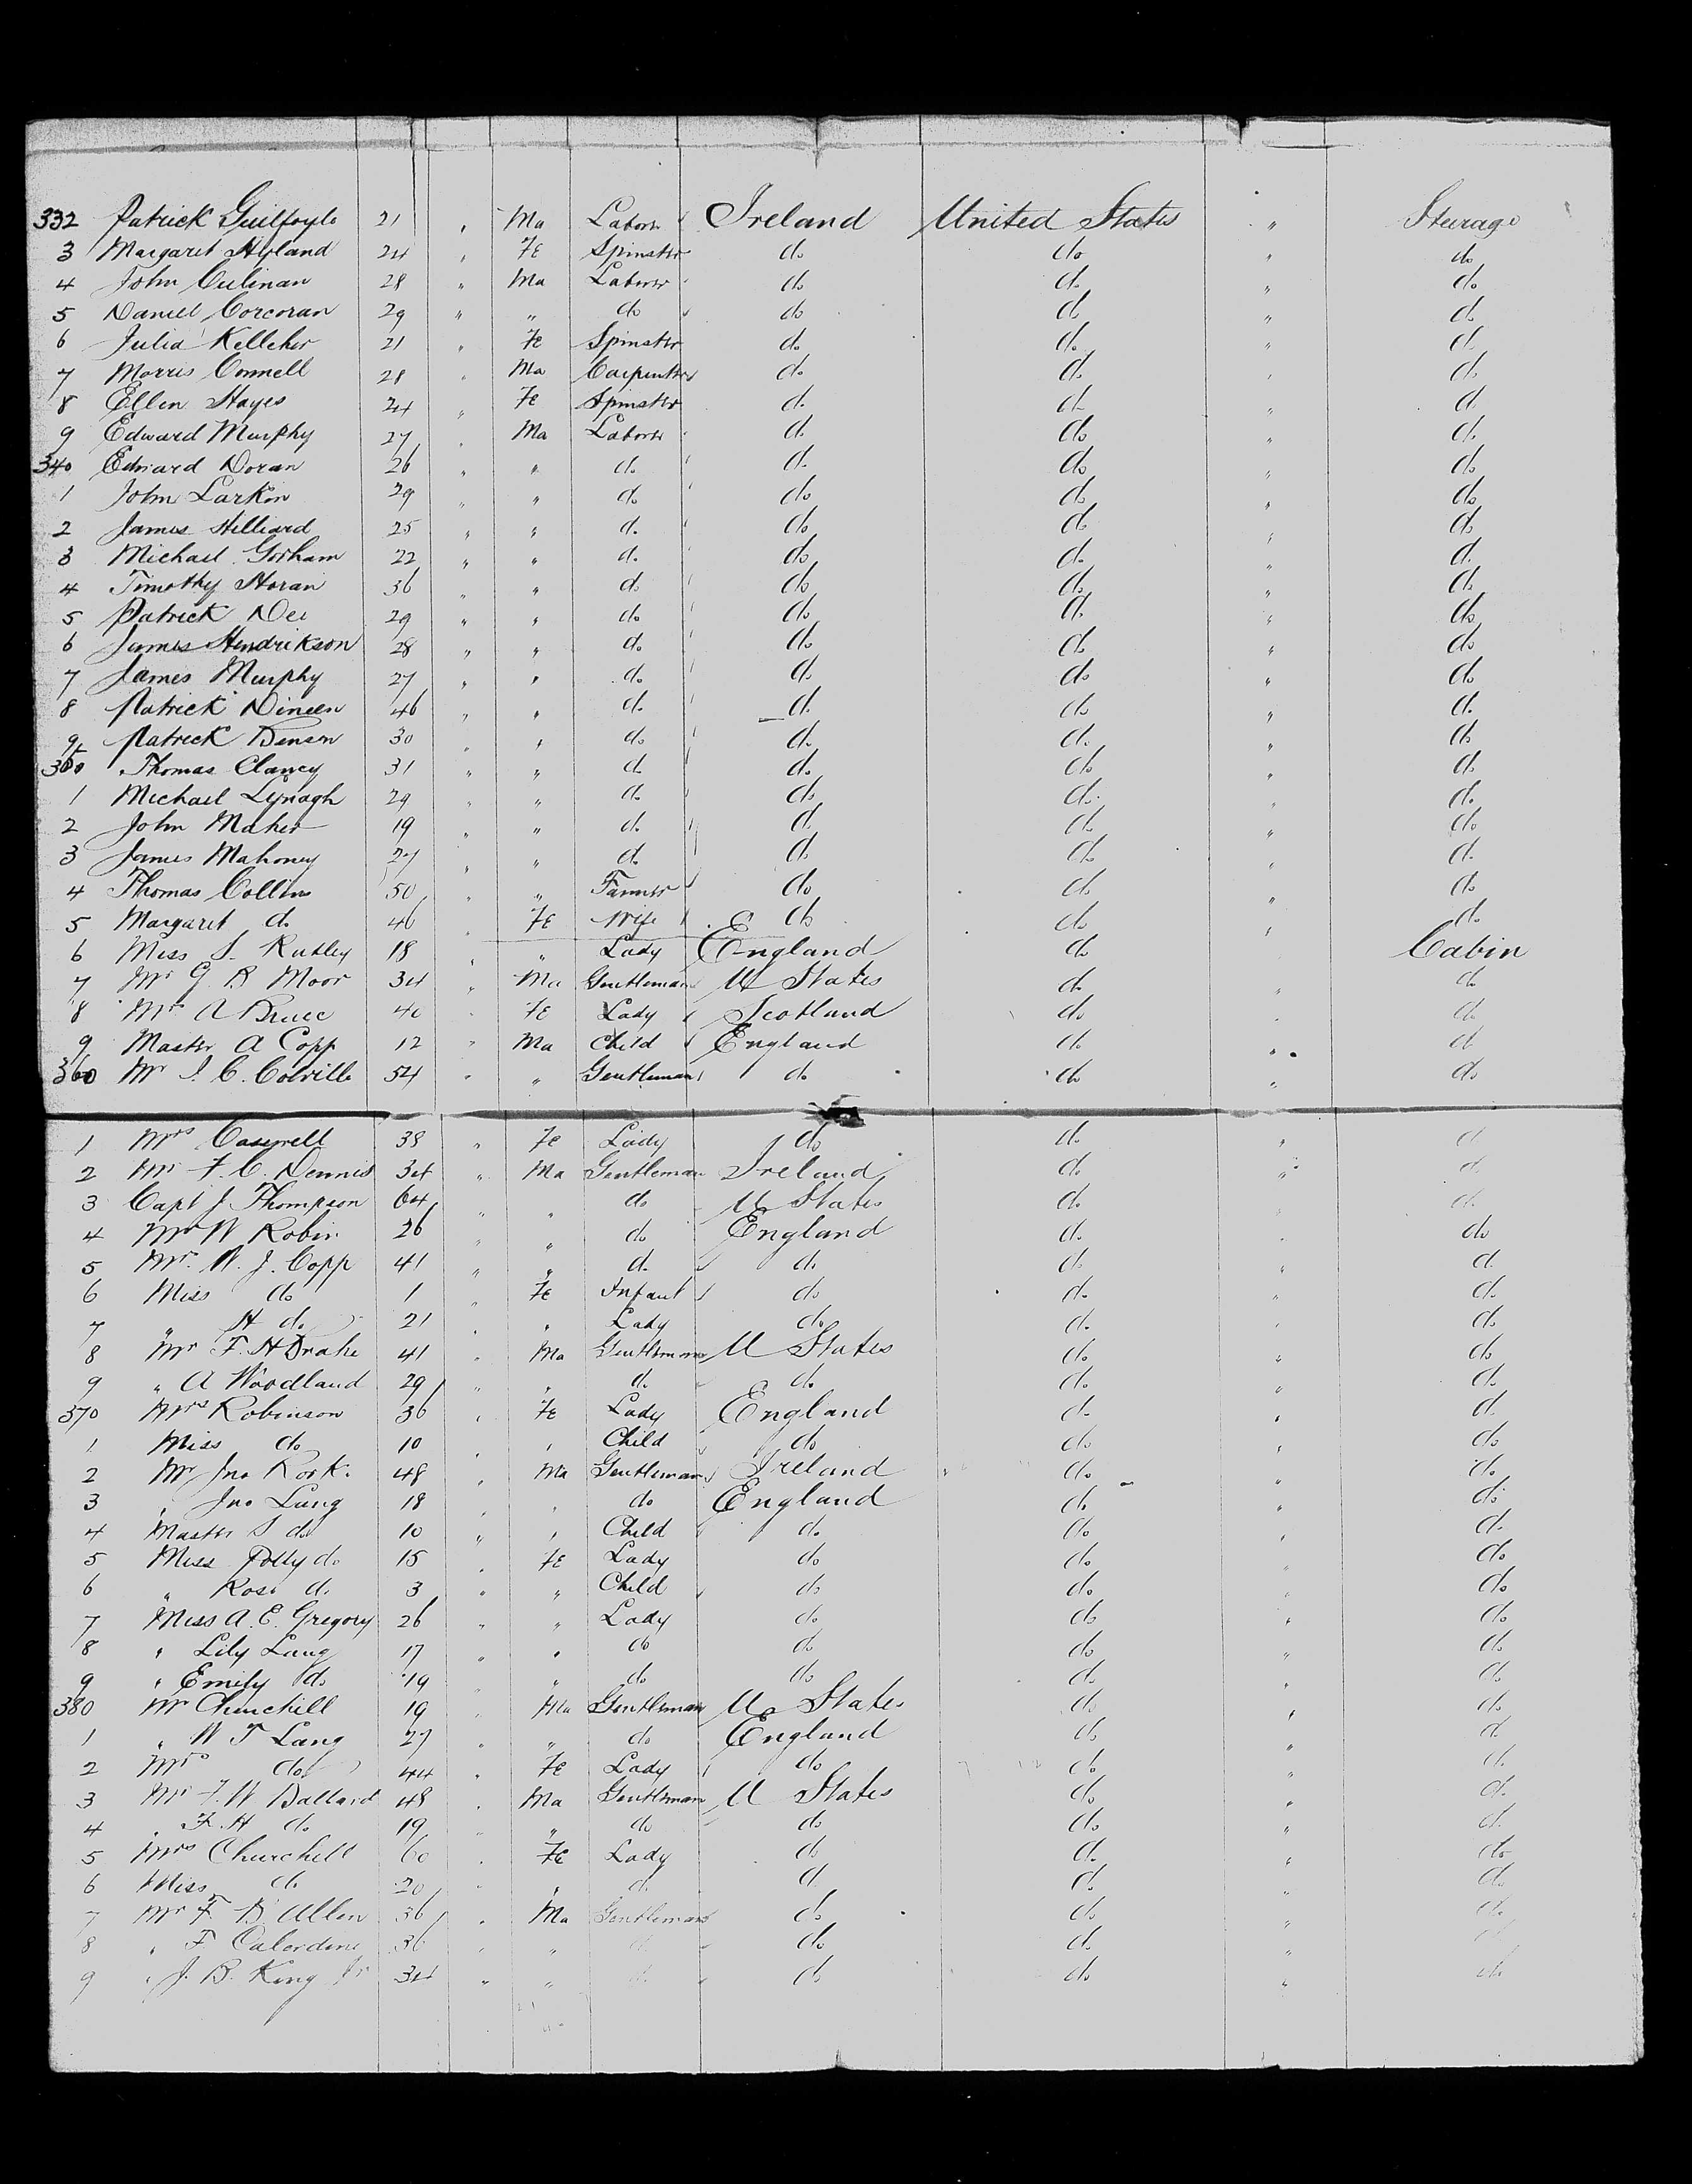 332 Patrick Guilfoyle 21 " Ma Laborer Ireland United States " Steerage
3 Margaret Hyland 24 " Fe Spinster do do " do
4 John Culinan 28 " Ma Laborer do do " do
5 Daniel Corcoran 29 " " do do do " do
6 Julia Kelleher 21 " Fe Spinster do do " do
7 Morris Connell 28 " Ma Carpenter do do " do
8 Ellen Hayes 24 " Fe Spinster do do " do
9 Edward Murphy 27 " Ma Laborer do do " do
340 Edward Doran 26 " " do do do " do
1 John Larkin 29 " " do do do " do
2 James Hilliard 25 " " do do do " do
3 Michael Gorham 22 " " do do do " do
4 Timothy Horan 36 " " do do do " do
5 Patrick Nee 29 " " do do do " do
6 James Hendrikson 28 " " do do do " do
7 James Murphy 27 " " do do do " do
8 Patrick Dineen 46 " " do do do " do
9 Patrick Benson 30 " " do do do " do
350 Thomas Clancy 31 " " do do do " do
1 Michael Lynagh 29 " " do do do " do
2 John Maher 19 " " do do do " do
3 James Mahoney 27 " " do do do " do
4 Thomas Collins 50 " " Farmer do do " do
5 Margaret do 46 " Fe Wife do do " do
6 Miss S. Rutley 18 " " Lady England do " Cabin
7 Mr G B Moor 34 " Ma Gentleman U States do " do
8 Mrs A Bruce 40 " Fe Lady Scotland do " do
9 Master A Copp 12 " Ma Child England do " do
360 Mr J. C. Colville 54 " " Gentleman do do " do
1 Mrs 38 " Fe Lady do do " do
2 Mr F. C. Dennis 34 " Ma Gentleman Ireland do " do
3 Capt J Thompson 64 " " do U States do " do
4 Mr W Robin 26 " " do England do " do
5 Mr. W. J. Copp 41 " " do do do " do
6 Miss do 1 " Fe Infant do do " do
7 " H do 21 " " Lady do do " do
8 Mr F. H Drake 41 " Ma Gentleman U States do " do
9 " A Woodland 29 " " do do do " do
370 Mrs Robinson 36 " Fe Lady England do " do
1 Miss do 10 " " Child do do " do
2 Mr Jno Rork. 48 " Ma Gentleman Ireland do " do
3 " Jno Lang 18 " " do England do " do
4 Master S do 10 " " Child do do " do
5 Miss Polly do 15 " Fe Lady do do " do
6 " Rose do 3 " " Child do do " do
7 Miss A. E. Gregory 26 " " Lady do do " do
8 " Lily Lang 17 " " do do do " do
9 " Emily do 19 " " do do do " do
380 Mr Churchill 19 " Ma Gentleman U States do " do
1 " W T Lang 27 " " do England do " do
2 Mrs do 44 " Fe Lady do do " do
3 Mr F. W Ballard 48 " Ma Gentleman U States do " do
4 " F. H do 19 " " do do do " do
5 Mrs Churchill 60 " Fe Lady do do " do
6 Miss do 20 " " do do do " do
7 Mr F. B Allen 36 " Ma Gentleman do do " do
8 " F 36 " " do do do " do
9 " J. B. King Jr 34 " " do do do " do